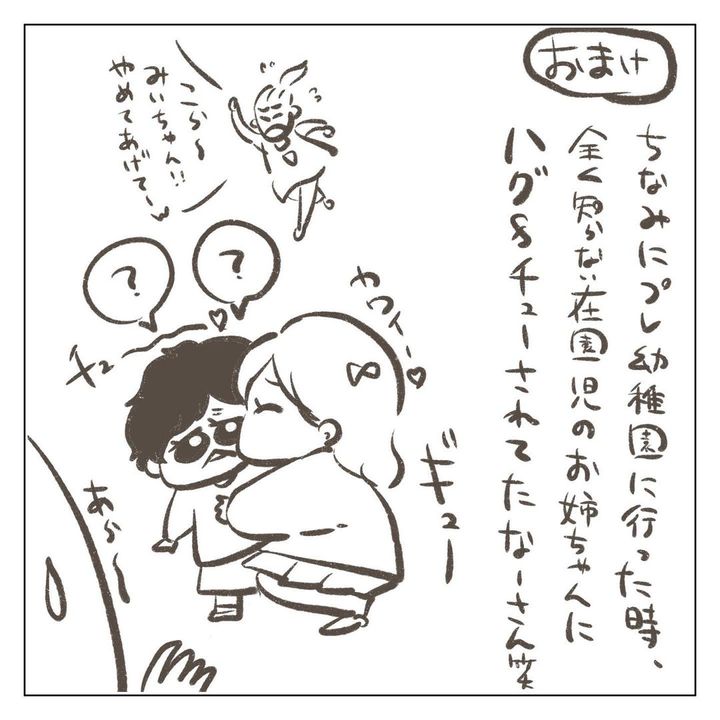 おまけ
ちなみにプレ幼稚園に行った時、
全く知らない在園児のお姉ちゃんに
ハグ&チューされてたなーさん笑
こら〜
みいちゃん!!
やめてあげてーw
?
?
カワイー♡
チュー♡
ギュー
あら〜